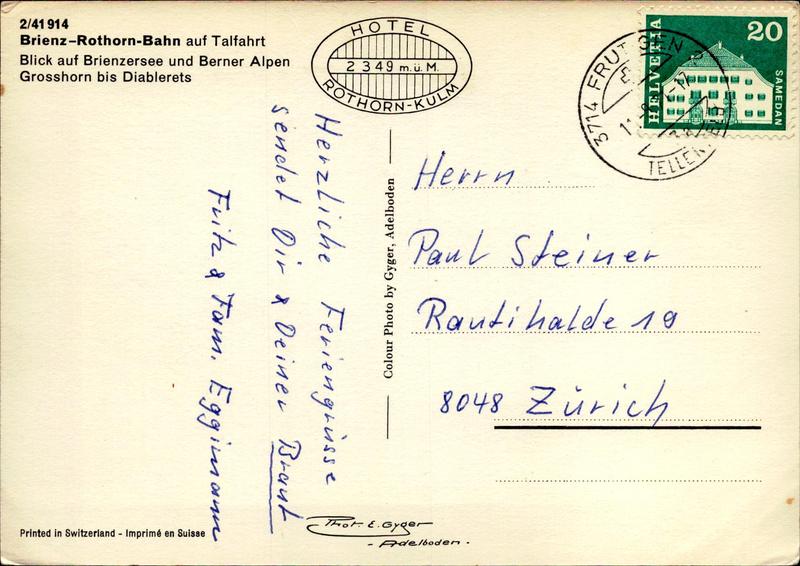 2/41 914
Brienz–Rothorn-Bahn auf Talfahrt
Blick auf Brienzersee und Berner Alpen
Grosshorn bis Diablerets
HOTEL
2349 m.ü.M.
ROTHORN-KULM
HELVETIA
20
SAMEDAN
3714 FRUTIGEN
Herzliche Feriengrüsse
sendet Dir & Deiner Braut
Fritz & Fam. Eggimann
Colour Photo by Gyger, Adelboden
Herrn
Paul Steiner
Rautihalde 19
8048 Zürich
Printed in Switzerland - Imprimé en Suisse
Phot. E. Gyger
- Adelboden -